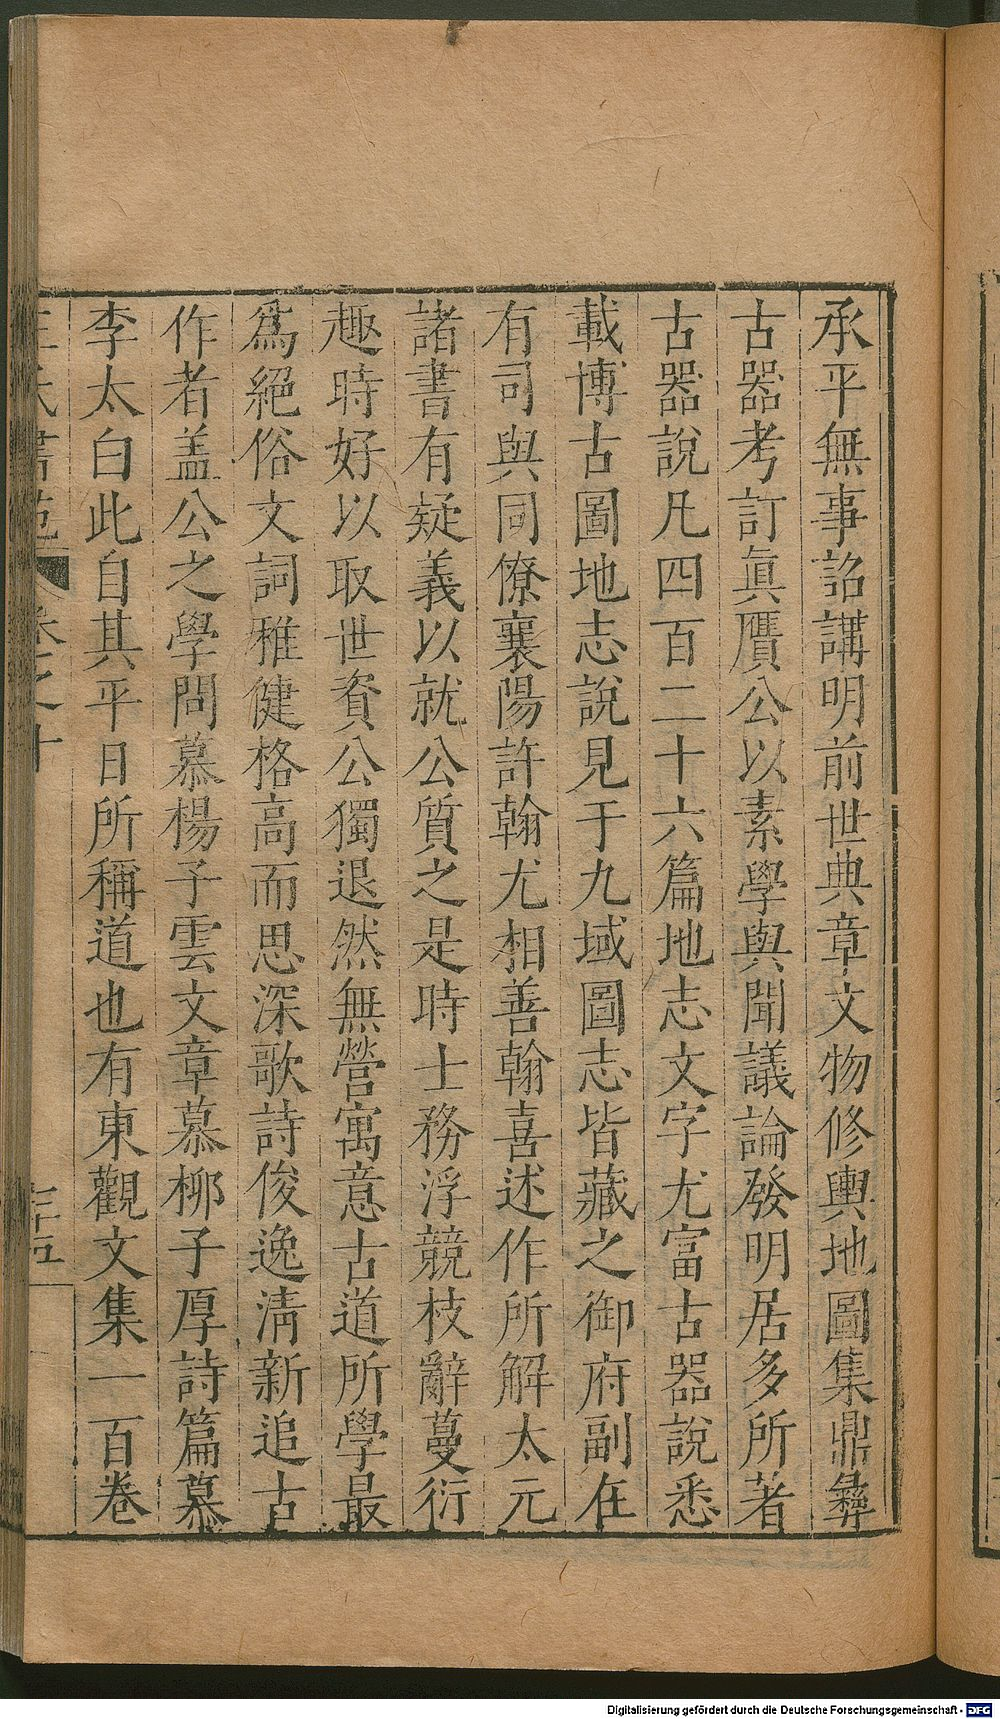 承平無事詔講明前世典章文物修輿地圖集鼎彝
古器考訂眞贋公以素學與聞議論發明居多所著
古器說凡四百二十六篇地志文字尤富古器說悉
載博古圖地志說見于九域圖志皆藏之御府副在
有司與同僚襄陽許翰尤相善翰喜述作所解太元
諸書有疑義以就公質之是時士務浮競枝辭蔓衍
趣時好以取世資公獨退然無營寓意古道所學最
爲絕俗文詞雅健格高而思深歌詩俊逸淸新追古
作者盖公之學問慕楊子雲文章慕柳子厚詩篇慕
李太白此自其平日所稱道也有東觀文集一百卷
卷之十
Digitalisierung gefördert durch die Deutsche Forschungsgemeinschaft - DFG